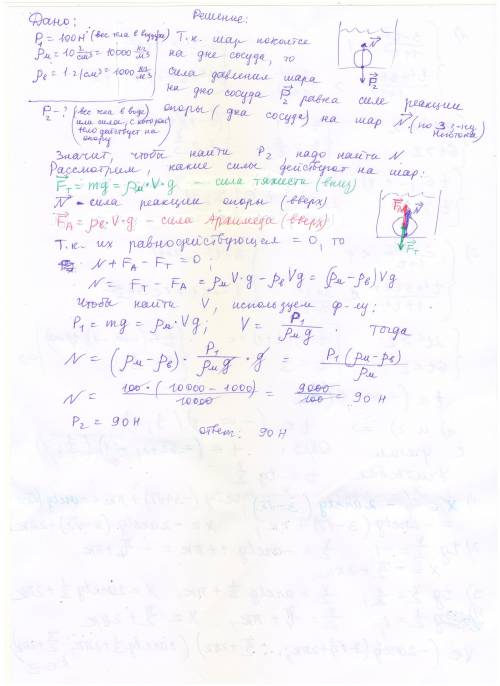 Дано:
Решение:
P₁ = 100 Н (вес тела в воздухе)
ρм = 10 г/см³ = 10000 кг/м³
ρв = 1 г/см³ = 1000 кг/м³
P₂ - ? (вес тела в воде или сила, с которой тело действует на опору)
Т.к. шар покоится
на дне сосуда, то
сила давления шара
на дно сосуда P₂ равна силе реакции
опоры (дна сосуда) на шар N (по 3 з-ну Ньютона)
N
P₂
Значит, чтобы найти P₂, надо найти N.
Рассмотрим, какие силы действуют на шар:
Fт = mg = ρм·V·g - сила тяжести (вниз)
N - сила реакции опоры (вверх)
FА = ρв·V·g - сила Архимеда (вверх)
FА
N
Fт
Т.к. их равнодействующая = 0, то
N + FА - Fт = 0
N = Fт - FА = ρм V·g - ρв Vg = (ρм - ρв) Vg
Чтобы найти V, используем ф-лу:
P₁ = mg = ρм·Vg; V = P₁/ρм g. Тогда
N = (ρм - ρв)· P₁/ρм g · g = P₁(ρм - ρв)/ρм
N = 100·(10000 - 1000)/10000 = 9000/100 = 90 Н
P₂ = 90 Н
ответ: 90 Н